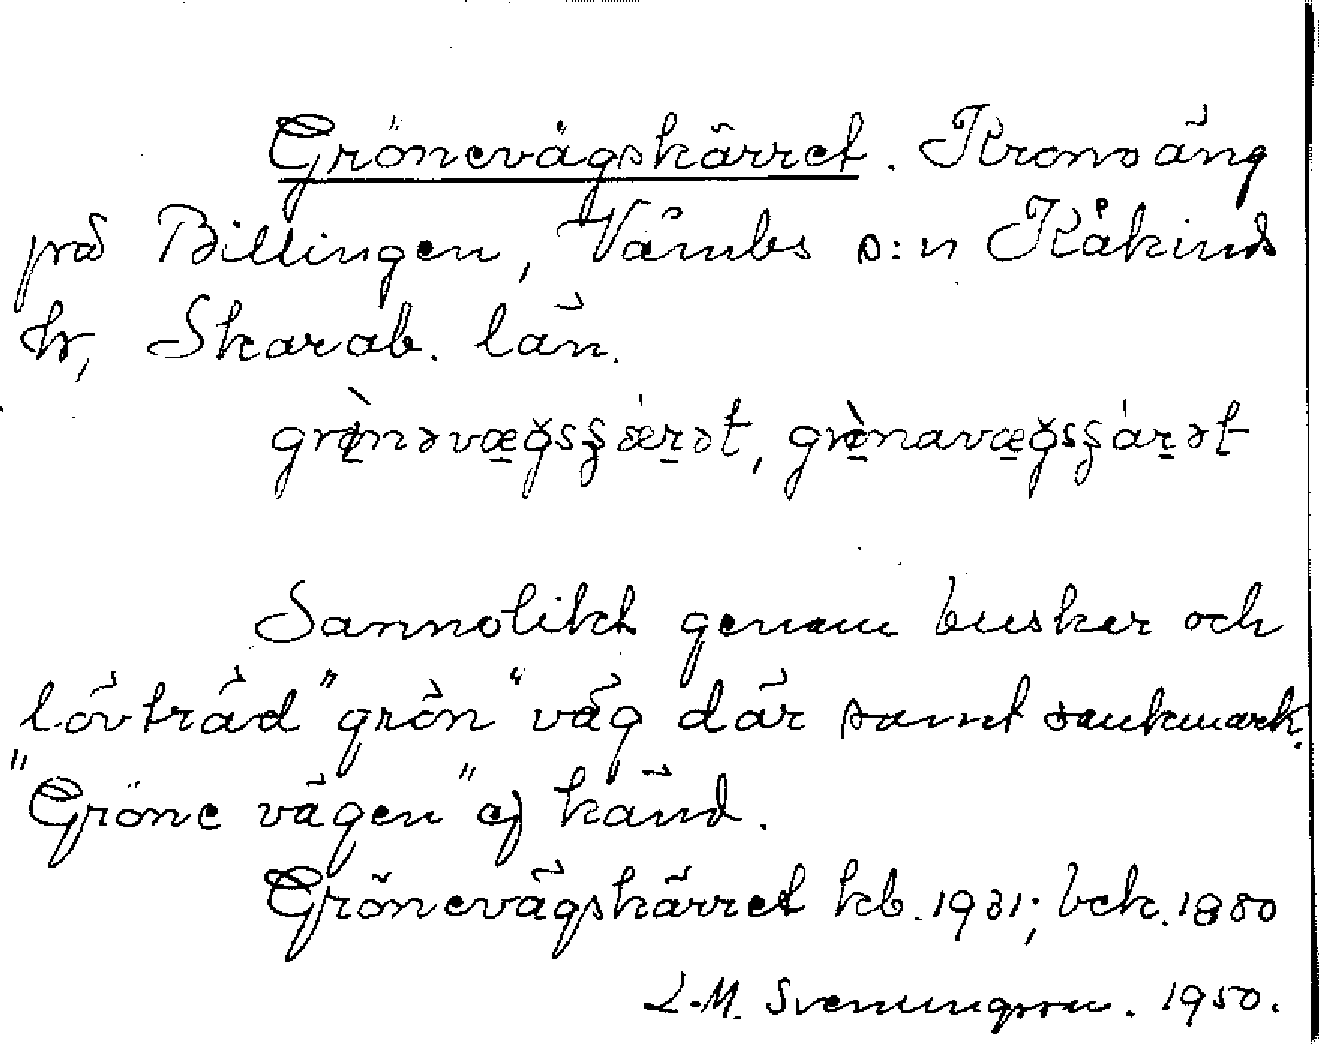 Grönevägskärret. Kronoäng
på Billingen, Våmbs s:n Kåkinds
hr, Skarab. län.
grø̀nəvæǥsʂǽrət, grø̀navæǥsʂárət
Sannolikt genom buskar och
lövträd "grön" väg där samt sankmark.
"Gröne vägen" ej känd.
Grönevägskärret kb. 1931; bek. 1880
L-M. Svenungsson. 1950.